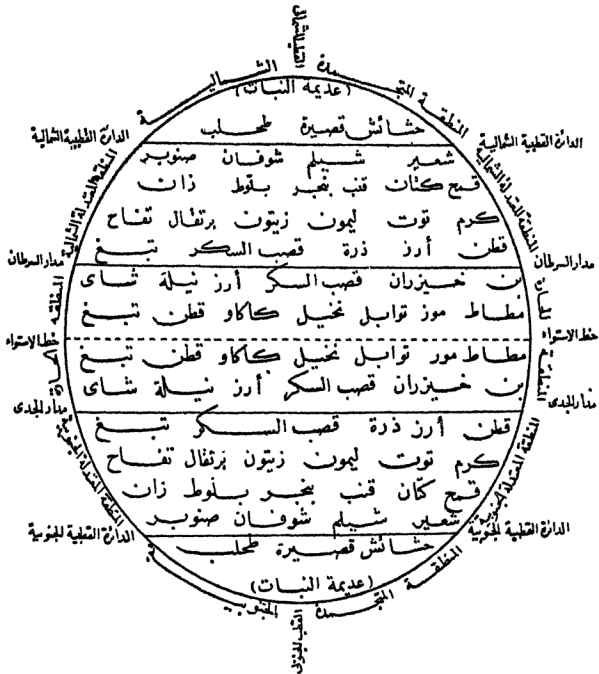 القطب الشمالى
المنطقة المتجمدة الشمالية
(عديمة النبات)
حشائش قصيرة طحلب
الدائرة القطبية الشمالية
الدائرة القطبية الشمالية
شعير شيلم شوفان صنوبر
المنطقة المعتدلة الشمالية
المنطقة المعتدلة الشمالية
قمح كتان قنب بنجر بلوط زان
كرم توت ليمون زيتون برتقال تفاح
قطن أرز ذرة قصب السكر تبغ
مدار السرطان
مدار السرطان
بن خيزران قصب السكر أرز نيلة شاى
مطاط موز توابل نخيل كاكاو قطن تبغ
المنطقة الحارة
المنطقة الحارة
خط الاستواء
خط الاستواء
مطاط موز توابل نخيل كاكاو قطن تبغ
بن خيزران قصب السكر أرز نيلة شاى
مدار الجدى
مدار الجدى
قطن أرز ذرة قصب السكر تبغ
كرم توت ليمون زيتون برتقال تفاح
المنطقة المعتدلة الجنوبية
المنطقة المعتدلة الجنوبية
قمح كتان قنب بنجر بلوط زان
شعير شيلم شوفان صنوبر
الدائرة القطبية الجنوبية
الدائرة القطبية الجنوبية
حشائش قصيرة طحلب
(عديمة النبات)
المنطقة المتجمدة الجنوبية
القطب الجنوبى